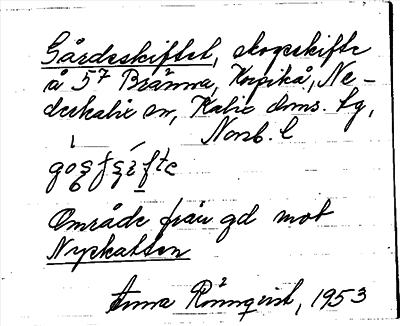 Gårdsskiftet, skogsskifte
å 5⁷ Bränna, Korpikå, Ne-
derkalix sn, Kalix doms. lg,
Norrb. l
Område från gd mot
Nyskatten
Anna Rönnqvist, 1953